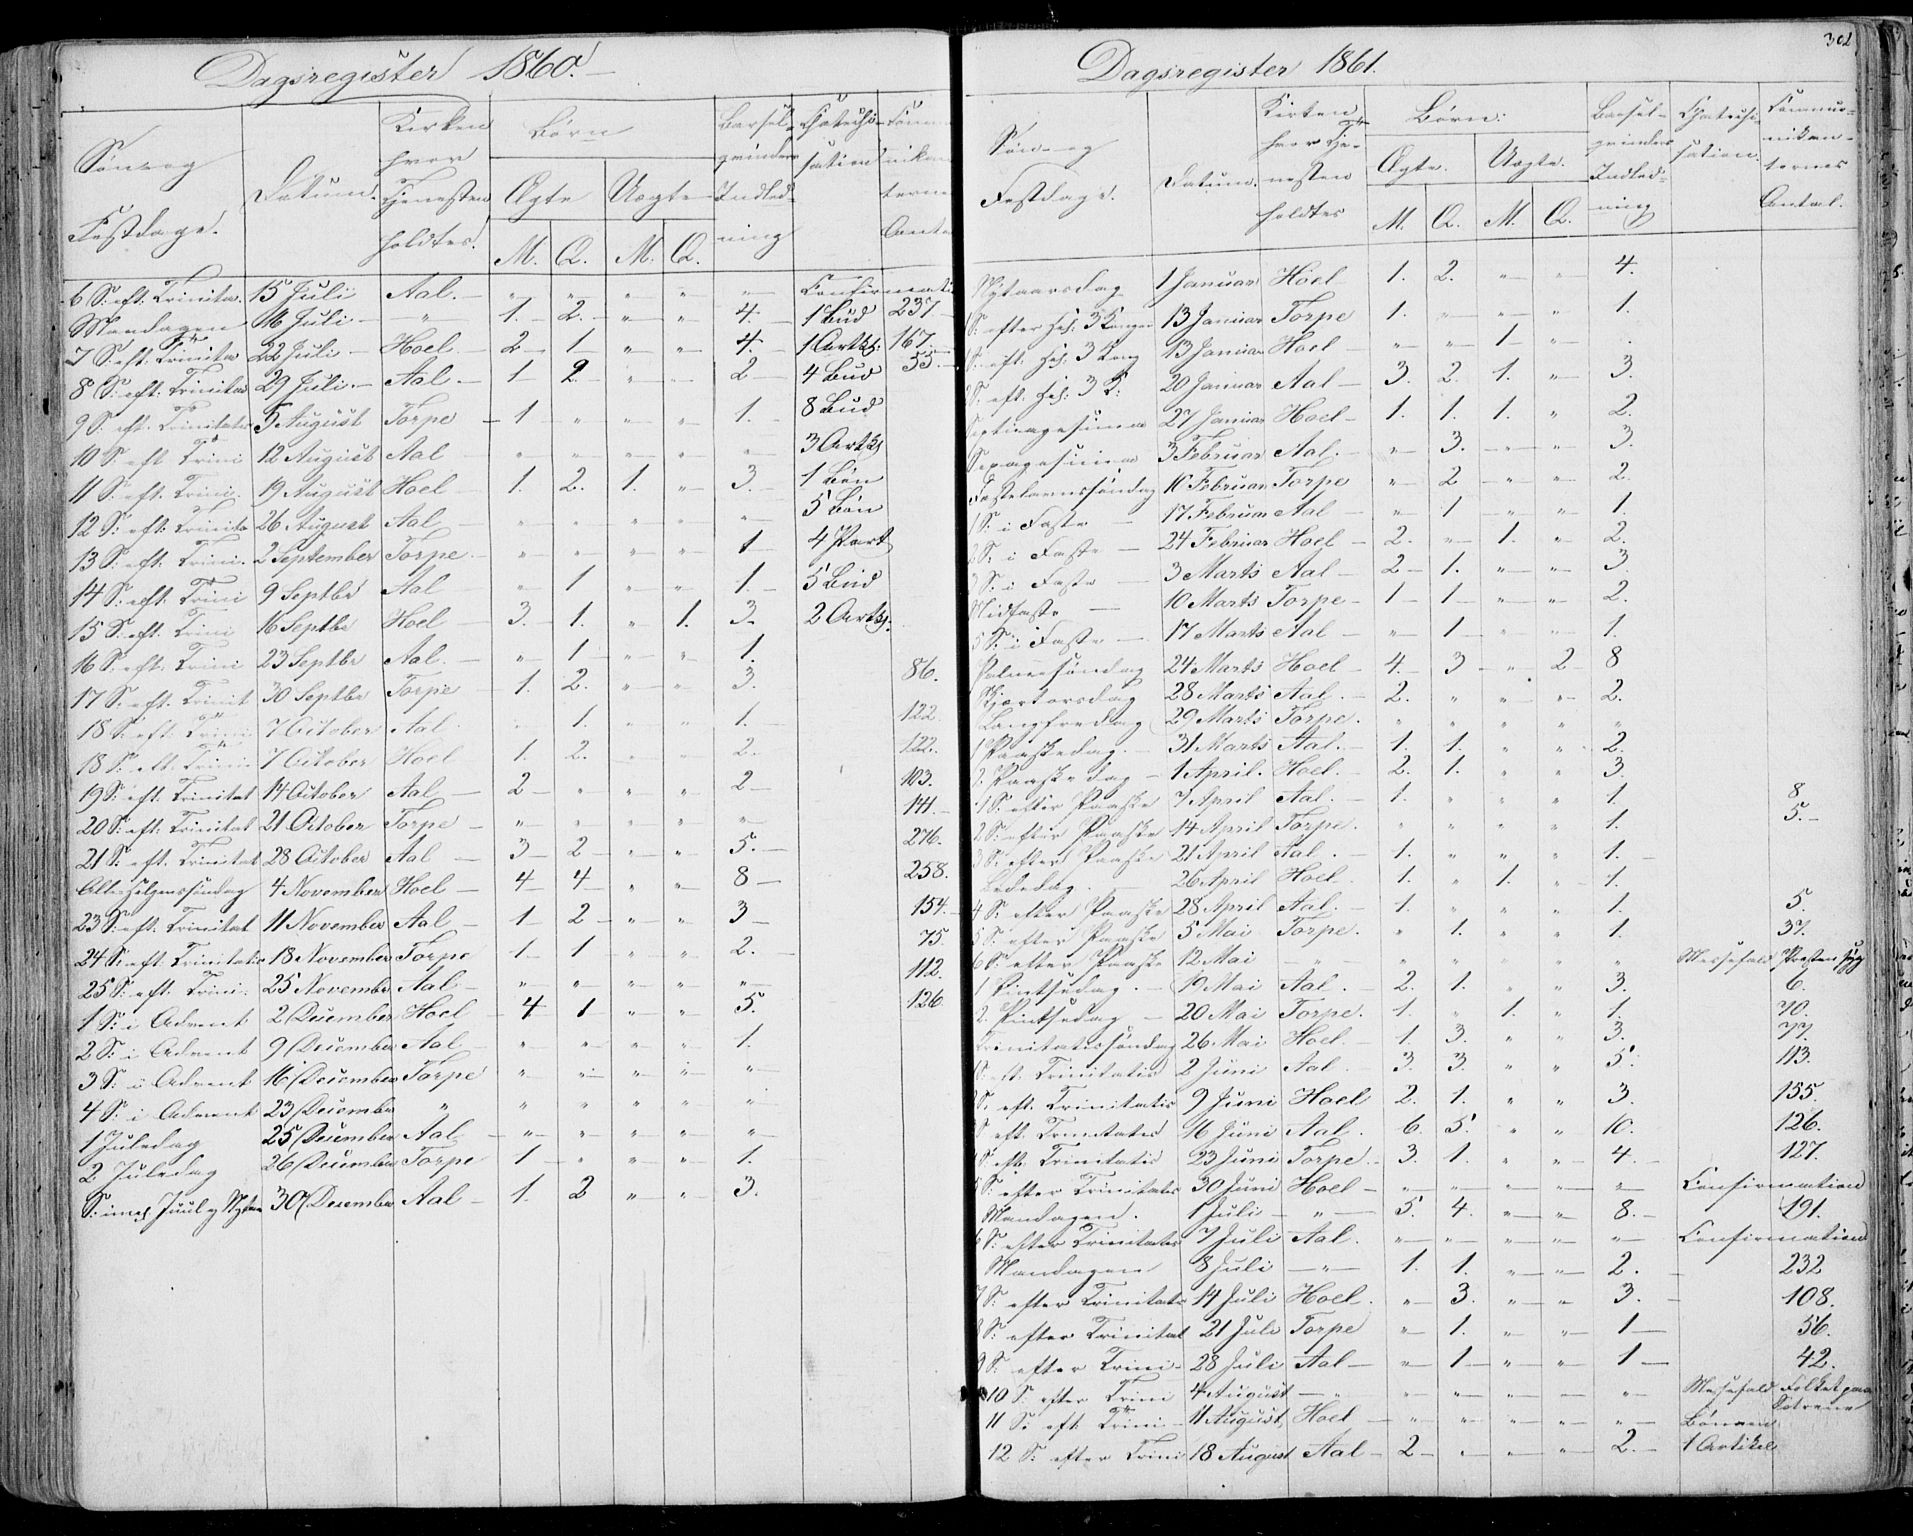 Dagsregister 1860.
Søn- og Festdage. | Datum. | Kirken hvor Tjenesten holdtes. | Børn | Ægte M. Q. | Uægte M. Q. | Barselqvinders Indledning | Chatechisation | Communikanternes Antal
6 S. eft. Trinita. 15 Juli Aal. „ „ „ „ „ Confirmati
Mandagen 16 Juli „ 1. 2. „ „ 4. 1 Bud 237
7 S. eft. Trinita 22 Juli Hoel 2 1 „ „ 4. 1 Artkl. 167.
8 S. eft. Trinitas 29 Juli Aal 1 2 „ 2 4 Bud 55.
9 S. eft. Trinitatis 5 August Torpe 1 „ „ „ 1. 8 Bud
10 S. eft. Trini 12 August Aal „ „ „ „ „ 3 Artkl
11 S. eft. Trini. 19 August Hoel 1. 2. 1. „ 3. 1 Bøn
12 S. eft. Trinita 26 August Aal „ „ „ „ „ 5 Bøn
13 S. eft. Trini. 2 September Torpe „ „ „ „ 1 4 Part
14 S. eft. Trini 9 Septbr Aal „ 1 „ „ 1. 5 Bud
15 S. eft. Trini 16 Septbr Hoel 3. 1. „ 1. 3. 2 Artkl.
16 S. eft. Trini 23 Septbr Aal. „ 1 „ „ 1.
17 S. eft. Trinit 30 Septbr Torpe 1. 2. „ „ 3. 86.
18 S. eft. Trini 7 October Aal „ 1. „ „ 1. 122.
18 S. eft. Trini 7 October Hoel 1. 2. „ „ 2. 122.
19 S. eft. Trinitat 14 October Aal 2 „ „ „ 2 103.
20 S. eft. Trinitat 21 October Torpe „ „ „ „ „ 141.
21 S. eft. Trinitat 28 October Aal 3 2 „ „ 5. 276.
Alle Helgenssøndag 4 November Hoel 4 4 „ „ 8 258.
23 S. eft. Trinitat 11 November Aal 1 2 „ „ 3 154.
24 S. eft. Trinitatis 18 November Torpe 1 1 „ „ 2. 75.
25 S. eft. Trini. 25 November Aal „ „ „ „ „ 112.
1 S. i Advent 2 December Hoel 4 1 „ „ 5. 126
2 S. i Advent 9 December Aal „ „ „ „ 1.
3 S. i Advent 16 December Torpe „ „ „ „ „
4 S. i Advent 23 December „ „ „ „ „ „
1 Juledag 25 December Aal „ „ „ „ „
2 Juledag 26 December Torpe 1 „ „ „ 1.
S. imel. Juul og Nytaar 30 December Aal 1. 2 „ „ 3.
302
Dagsregister 1861.
Søn- og Festdage. | Datum. | Kirken hvor Tjenesten holdtes | Børn: | Ægte. M. Q. | Uægte. M. Q. | Barselqvinders Indledning | Chatechisation. | Communikanternes Antal.
Nytaarsdag 1 Januar Hoel 1. 2. „ „ 4.
S. efter Hel. 3 Konger 13 Januar Torpe 1. „ „ „ 1.
S. eft. Hel. 3 Kong 13 Januar Hoel „ „ 1 „
S. eft. Hel. 3 K. 20 Januar Aal 3. 2. 1. „ 3.
Septuagesima 27 Januar Hoel 1. 1. 1. „ 2.
Sexagesima 3 Februar Aal. „ 3. „ „ 3.
Fastelavnssøndag 10 Februar Torpe „ 2 „ „ 2.
1 S. i Faste 17 Februar Aal „ 1 „ „ 1.
2 S. i Faste 24 Februar Hoel 2. „ 1. „ 2.
3 S. i Faste 3 Marts Aal 2 1. „ „ 3.
Midfaste 10 Marts Torpe 1 1 „ „ 2.
5 S. i Faste 17 Marts Aal „ 1 „ „ 1.
Palmesøndag 24 Marts Hoel 4. 3 „ 2 8
Skjærtorsdag 28 Marts Aal. 2. „ „ „ 2.
Langfredag 29 Marts Torpe. „ „ „ „ „
1 Paaskedag. 31 Marts Aal. 1. 1. „ „ 2.
2. Paaskedag 1 April. Hoel. 2. 1. „ „ 3.
1 S. efter Paaske 7 April Aal. 1. „ „ „ 1. 8.
2 S. efter Paaske 14 April Torpe. „ „ „ „ 1. 5.
3 S. efter Paaske 21 April Aal. 1. „ „ „ 1.
Bededag. 26 April Hoel. 1. „ 1. „ 1.
4 S. efter Paaske 28 April Aal. 1. „ „ „ 1. 5.
5 S. efter Paaske 5 Mai Torpe. „ 1. „ „ 1. 37.
6 S. efter Paaske 12 Mai „ „ „ „ „ „ Messefald Præsten syg
1 Pintsedag. 19 Mai Aal. 2. 1. „ „ 3. 6.
2. Pintsedag 20 Mai Torpe. 1. „ 1. „ 1. 70.
Trinitatissøndag 26 Mai Hoel. 1. 3. „ „ 3. 77.
1 S. eft. Trinitatis 2 Juni Aal. 3. 3. „ „ 5. 113.
S. eft. Trinitatis 9 Juni Hoel 2. 1. „ „ 3. 155.
S. eft. Trinitatis 16 Juni Aal. 6. 5. „ „ 10. 126.
S. eft. Trinitatis 23 Juni Torpe. 3. 1. „ „ 4. 127.
5 S. efter Trinitatis 30 Juni Hoel „ „ „ „ „ Confirmation
Mandagen. 1 Juli „ 5. 4. „ „ 8. 191.
6 S. efter Trinitatis 7 Juli Aal. „ „ „ „ „ Confirmation
Mandagen 8 Juli „ 1. 1. „ „ 2. 232
7 S. efter Trinitatis 14 Juli Hoel. „ 3. „ „ 3. 108.
8 S. efter Trinitat 21 Juli Torpe „ 1. „ „ 1 56.
9 S. efter Trini 28 Juli Aal „ 1 „ „ 1 42.
10 S. efter Trini 4 August „ „ „ „ „ „ Messefald Folket paa Sætrene
11 S. eft. Trini 11 August, Hoel „ „ „ „ „ Bønnen
12 S. efter Trini 18 August Aal 2 „ „ „ 2. 1 Artikel